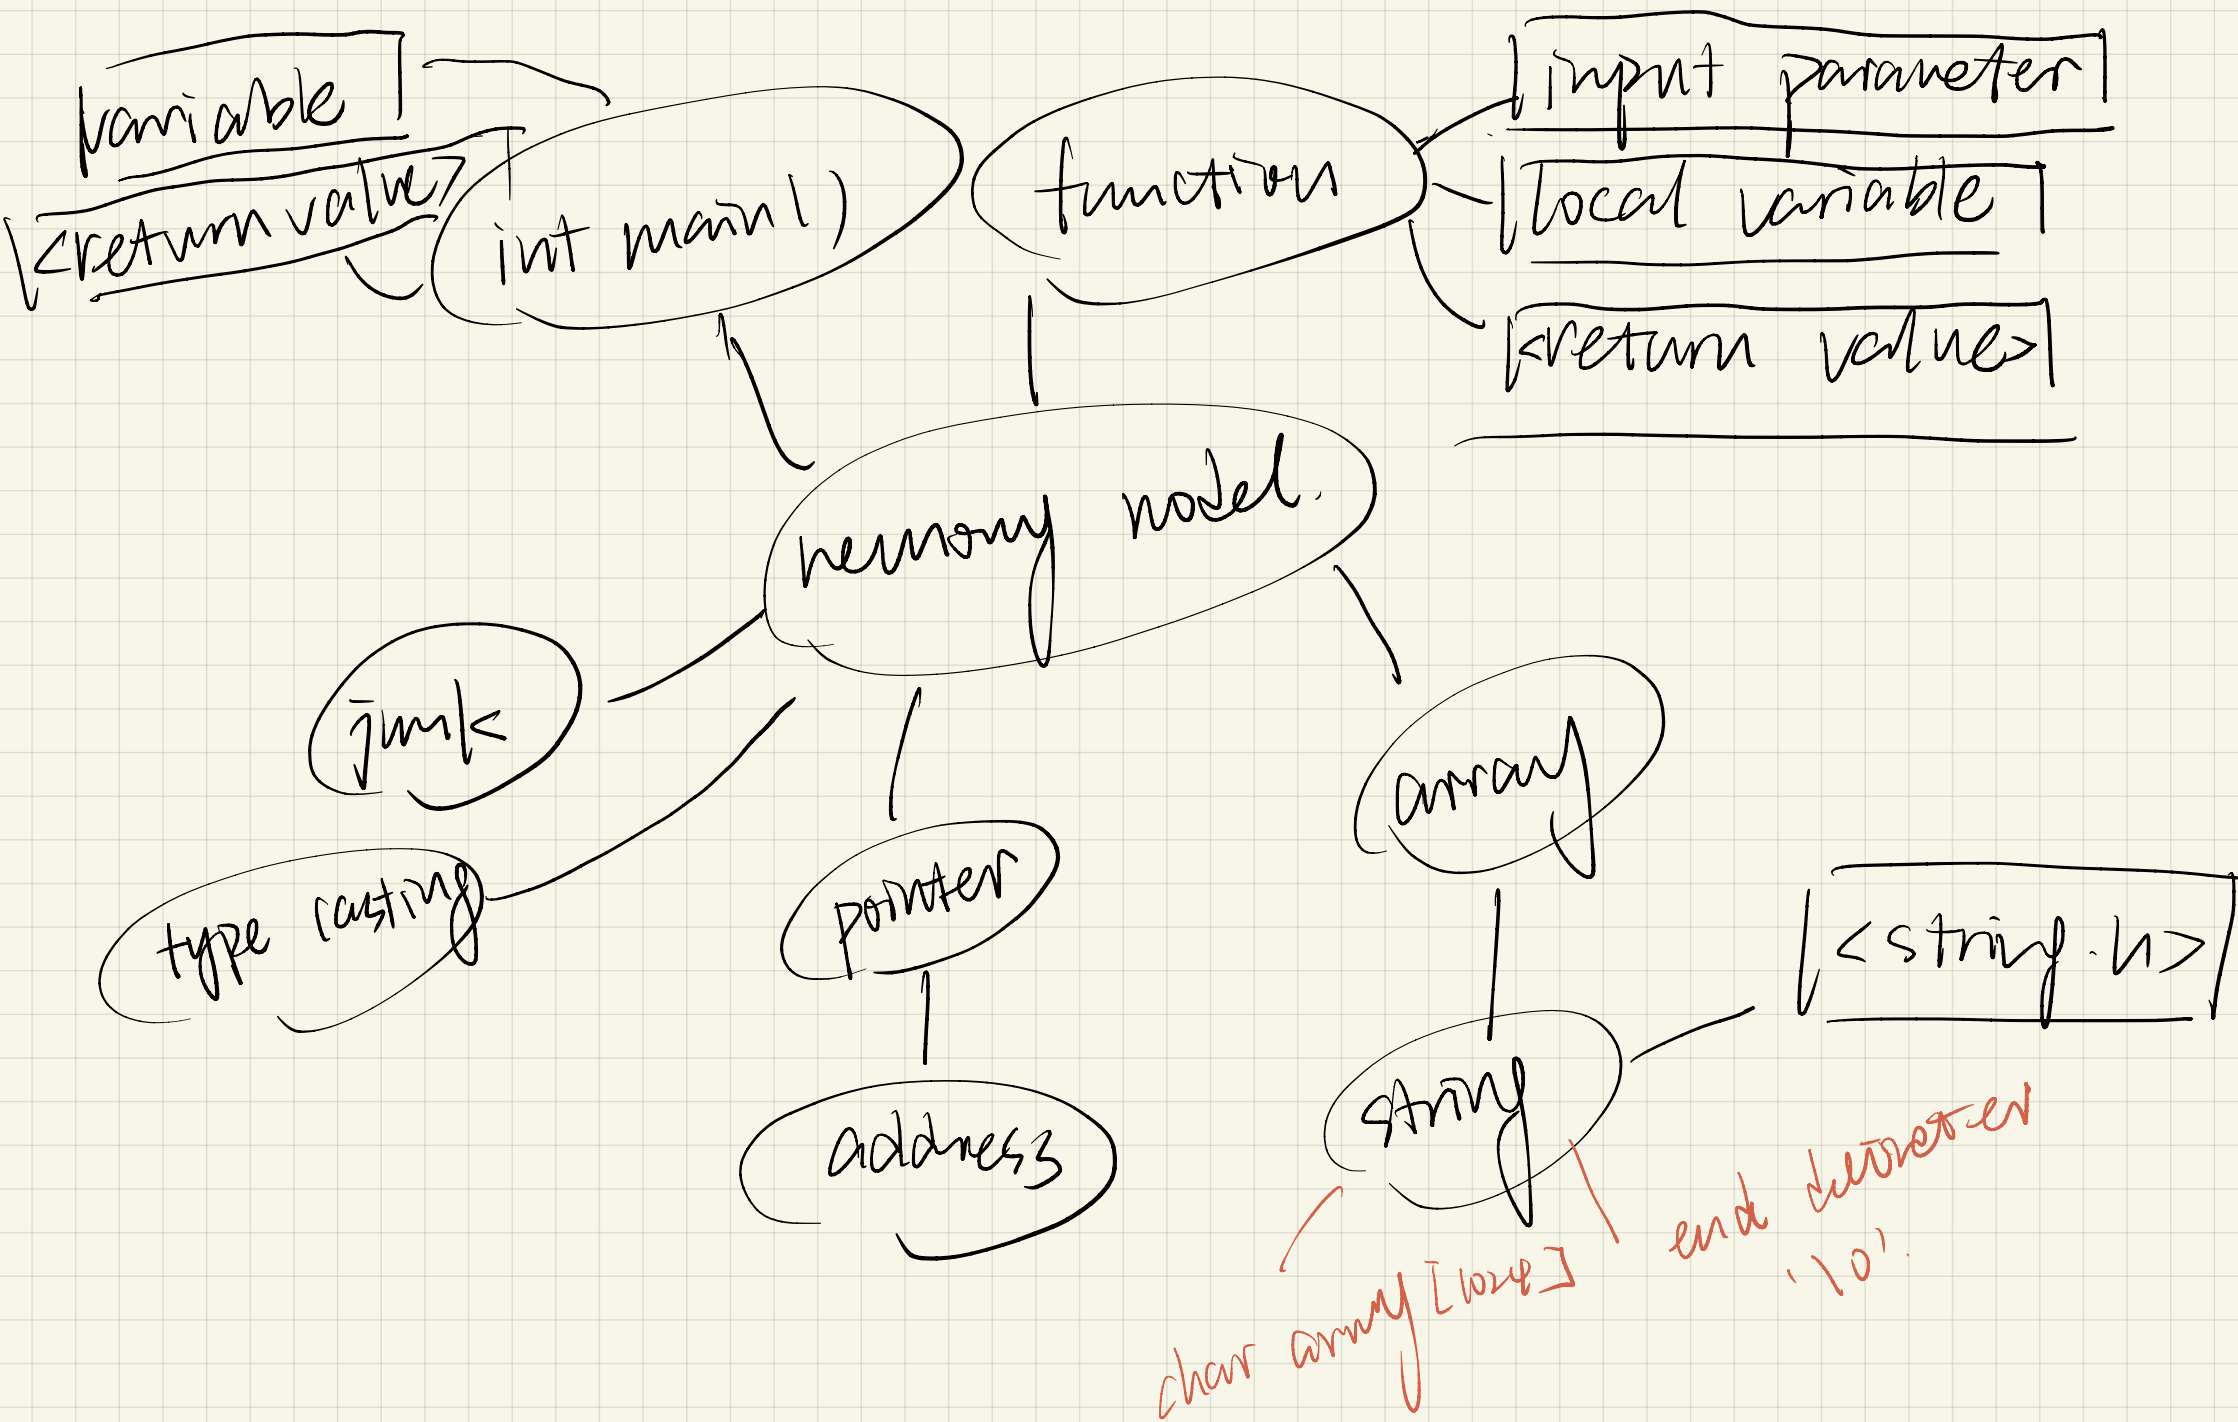 variable
<return value>
int main()
function
input parameter
local variable
<return value>
memory model.
junk
type casting
pointer
address
array
string
<string.h>
char array [1024]
end
'\0'.